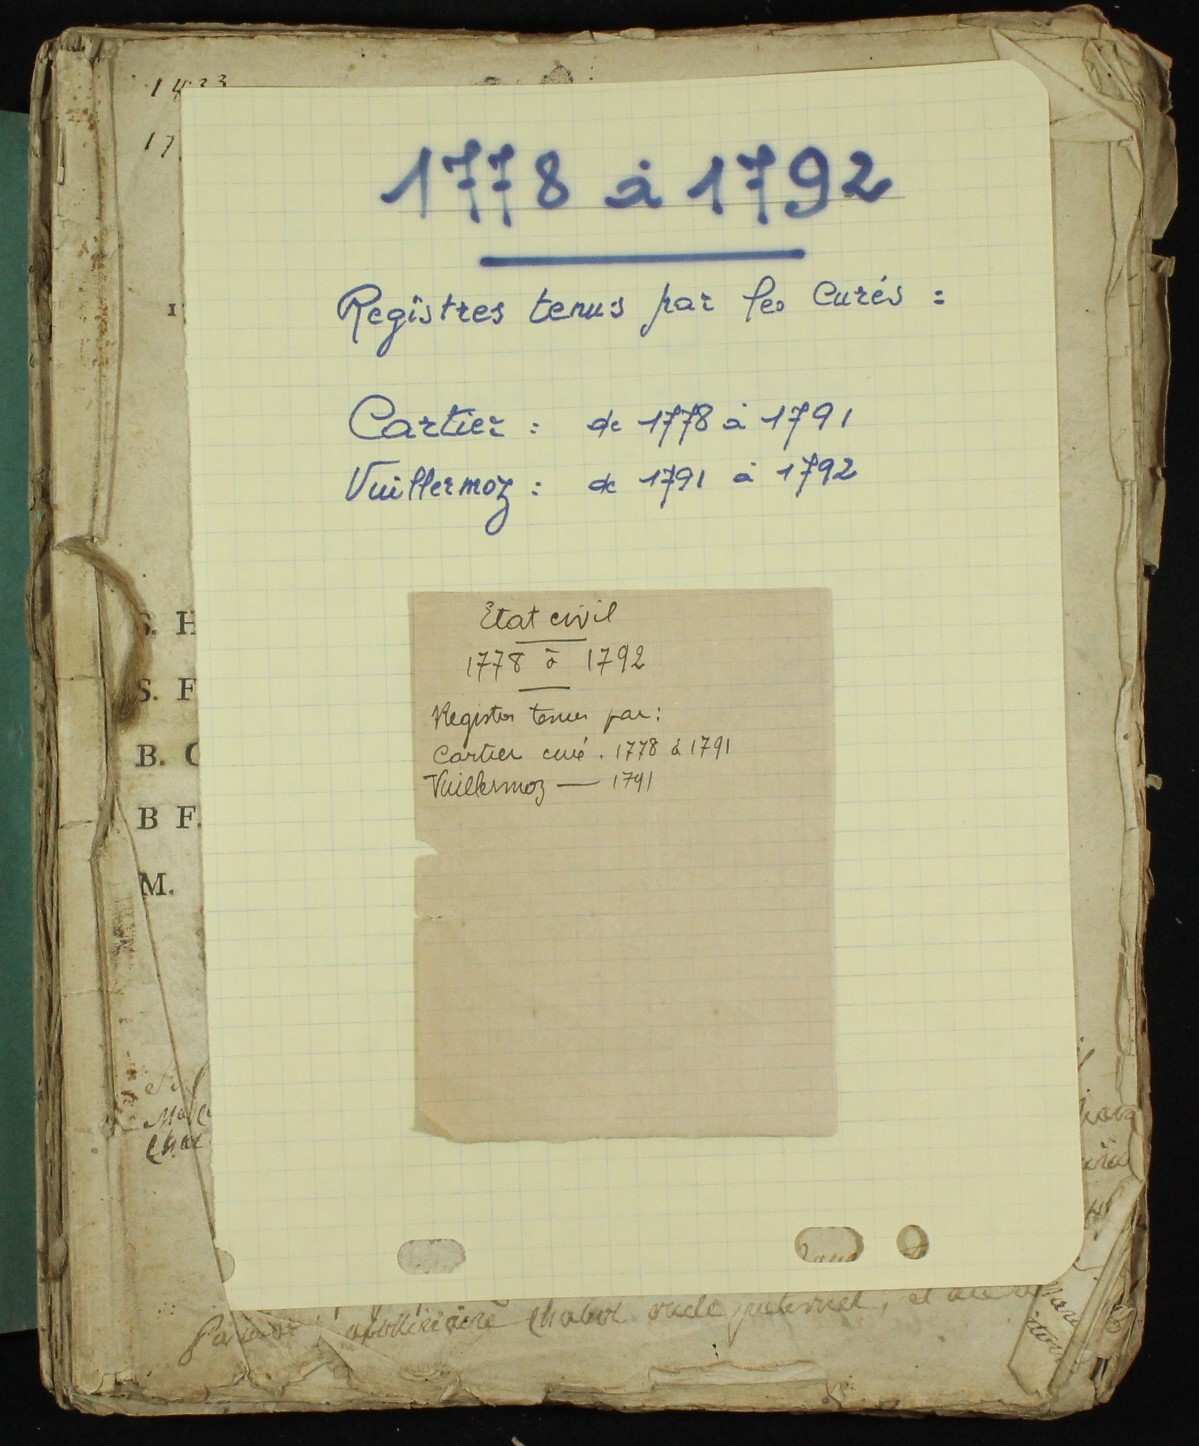 1433
17
1778 à 1792
Registres tenus par les Curés :
Cartier : de 1778 à 1791
Vuillermoz : de 1791 à 1792
Etat civil
1778 à 1792
Registres tenus par :
Cartier curé . 1778 à 1791
Vuillermoz — 1791
S. H
S. F
B. C
B F.
M.
Chabot oncle paternel, et